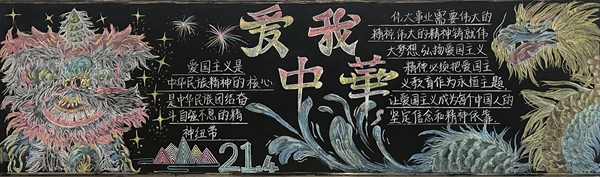 爱我
中華
爱国主义是
中华民族精神的核心
是中华民族团结奋
斗自强不息的精
神纽带
214
伟大事业需要伟大的
精神,伟大的精神铸就伟
大梦想,弘扬爱国主义
精神必须把爱国主
义教育作为永恒主题
让爱国主义成为每个中国人的
坚定信念和精神依靠.